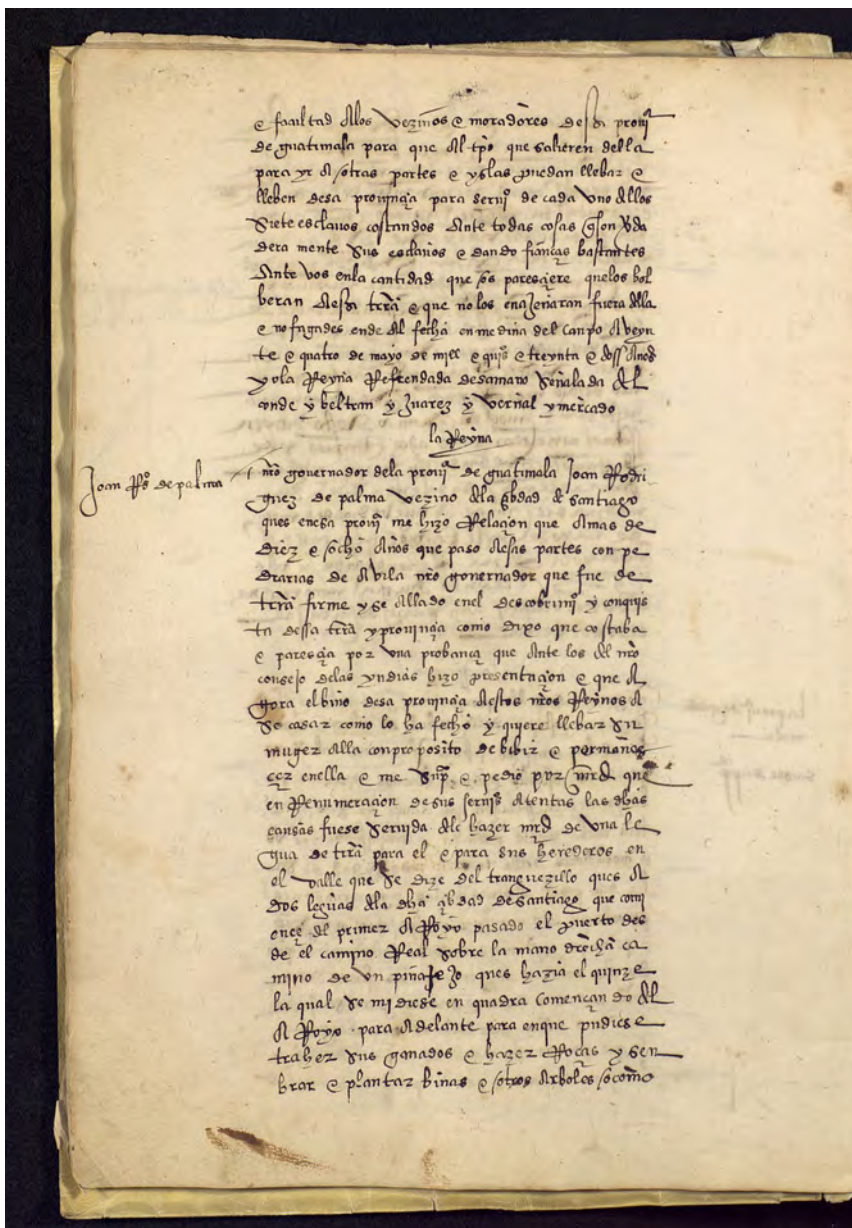 e facultad a los vezinos e moradores desa provinª
de guatimala para que al tpo que salieren della
para yr a otras partes e yslas puedan llebar e
lleben desa provinçia para serviº de cada uno dellos
siete esclavos costandos ante todas cosas q son verda
dera mente sus esclavos e dando fianças bastantes
ante vos en la cantidad que os paresçiere que los bol
beran a esa trra e que no los enajenaran fuera della
e no fagades ende al fecha en medina del canpo a veyn
te e quatro de mayo de mill e quiºs e treynta e doss años
yo la Reyna Refrendada de samano señalada del
conde y beltran y Juarez y vernal y mercado
la Reyna
Joan Rºs de palma
nro governador de la provinª de guatimala Joan Rodri
guez de palma vezino de la çibdad de santiago
ques en esa provinª me hizo Relaçion que a mas de
diez e ocho años que paso a esas partes con pe
drarias de avila nro governador que fue de
trra firme y se a llado en el descobrimiº y conquis
ta dessa trra y provinçia como dixo que costaba
e paresçia por una probança que ante los del nro
consejo de las yndias hizo presentaçion e que a
gora el bino desa provinçia a estos nros Reynos a
se casar como lo ha fecho y quiere llebar su
muger alla con proposito de bibir e permanes
çer en ella e me supcº e pedio por mrd que
en Renumeraçion de sus serviºs atentas las dhas
cansas fuese servida de le hazer mrd de una le
gua de trra para el e para sus herederos en
el valle que se dize del tianguezillo ques a
dos leguas de la dha çibdad de santiago que comi
ençe del primer aRoyo pasado el puerto des
de el camino Real sobre la mano drecha ca
mino de un pinalejo ques hazia el quinze
la qual se mi diese en quadra començando del
aRoyo para adelante para en que pudiese
traher sus ganados e hazer Roças y sen
brar e plantar binas e otros arboles o como